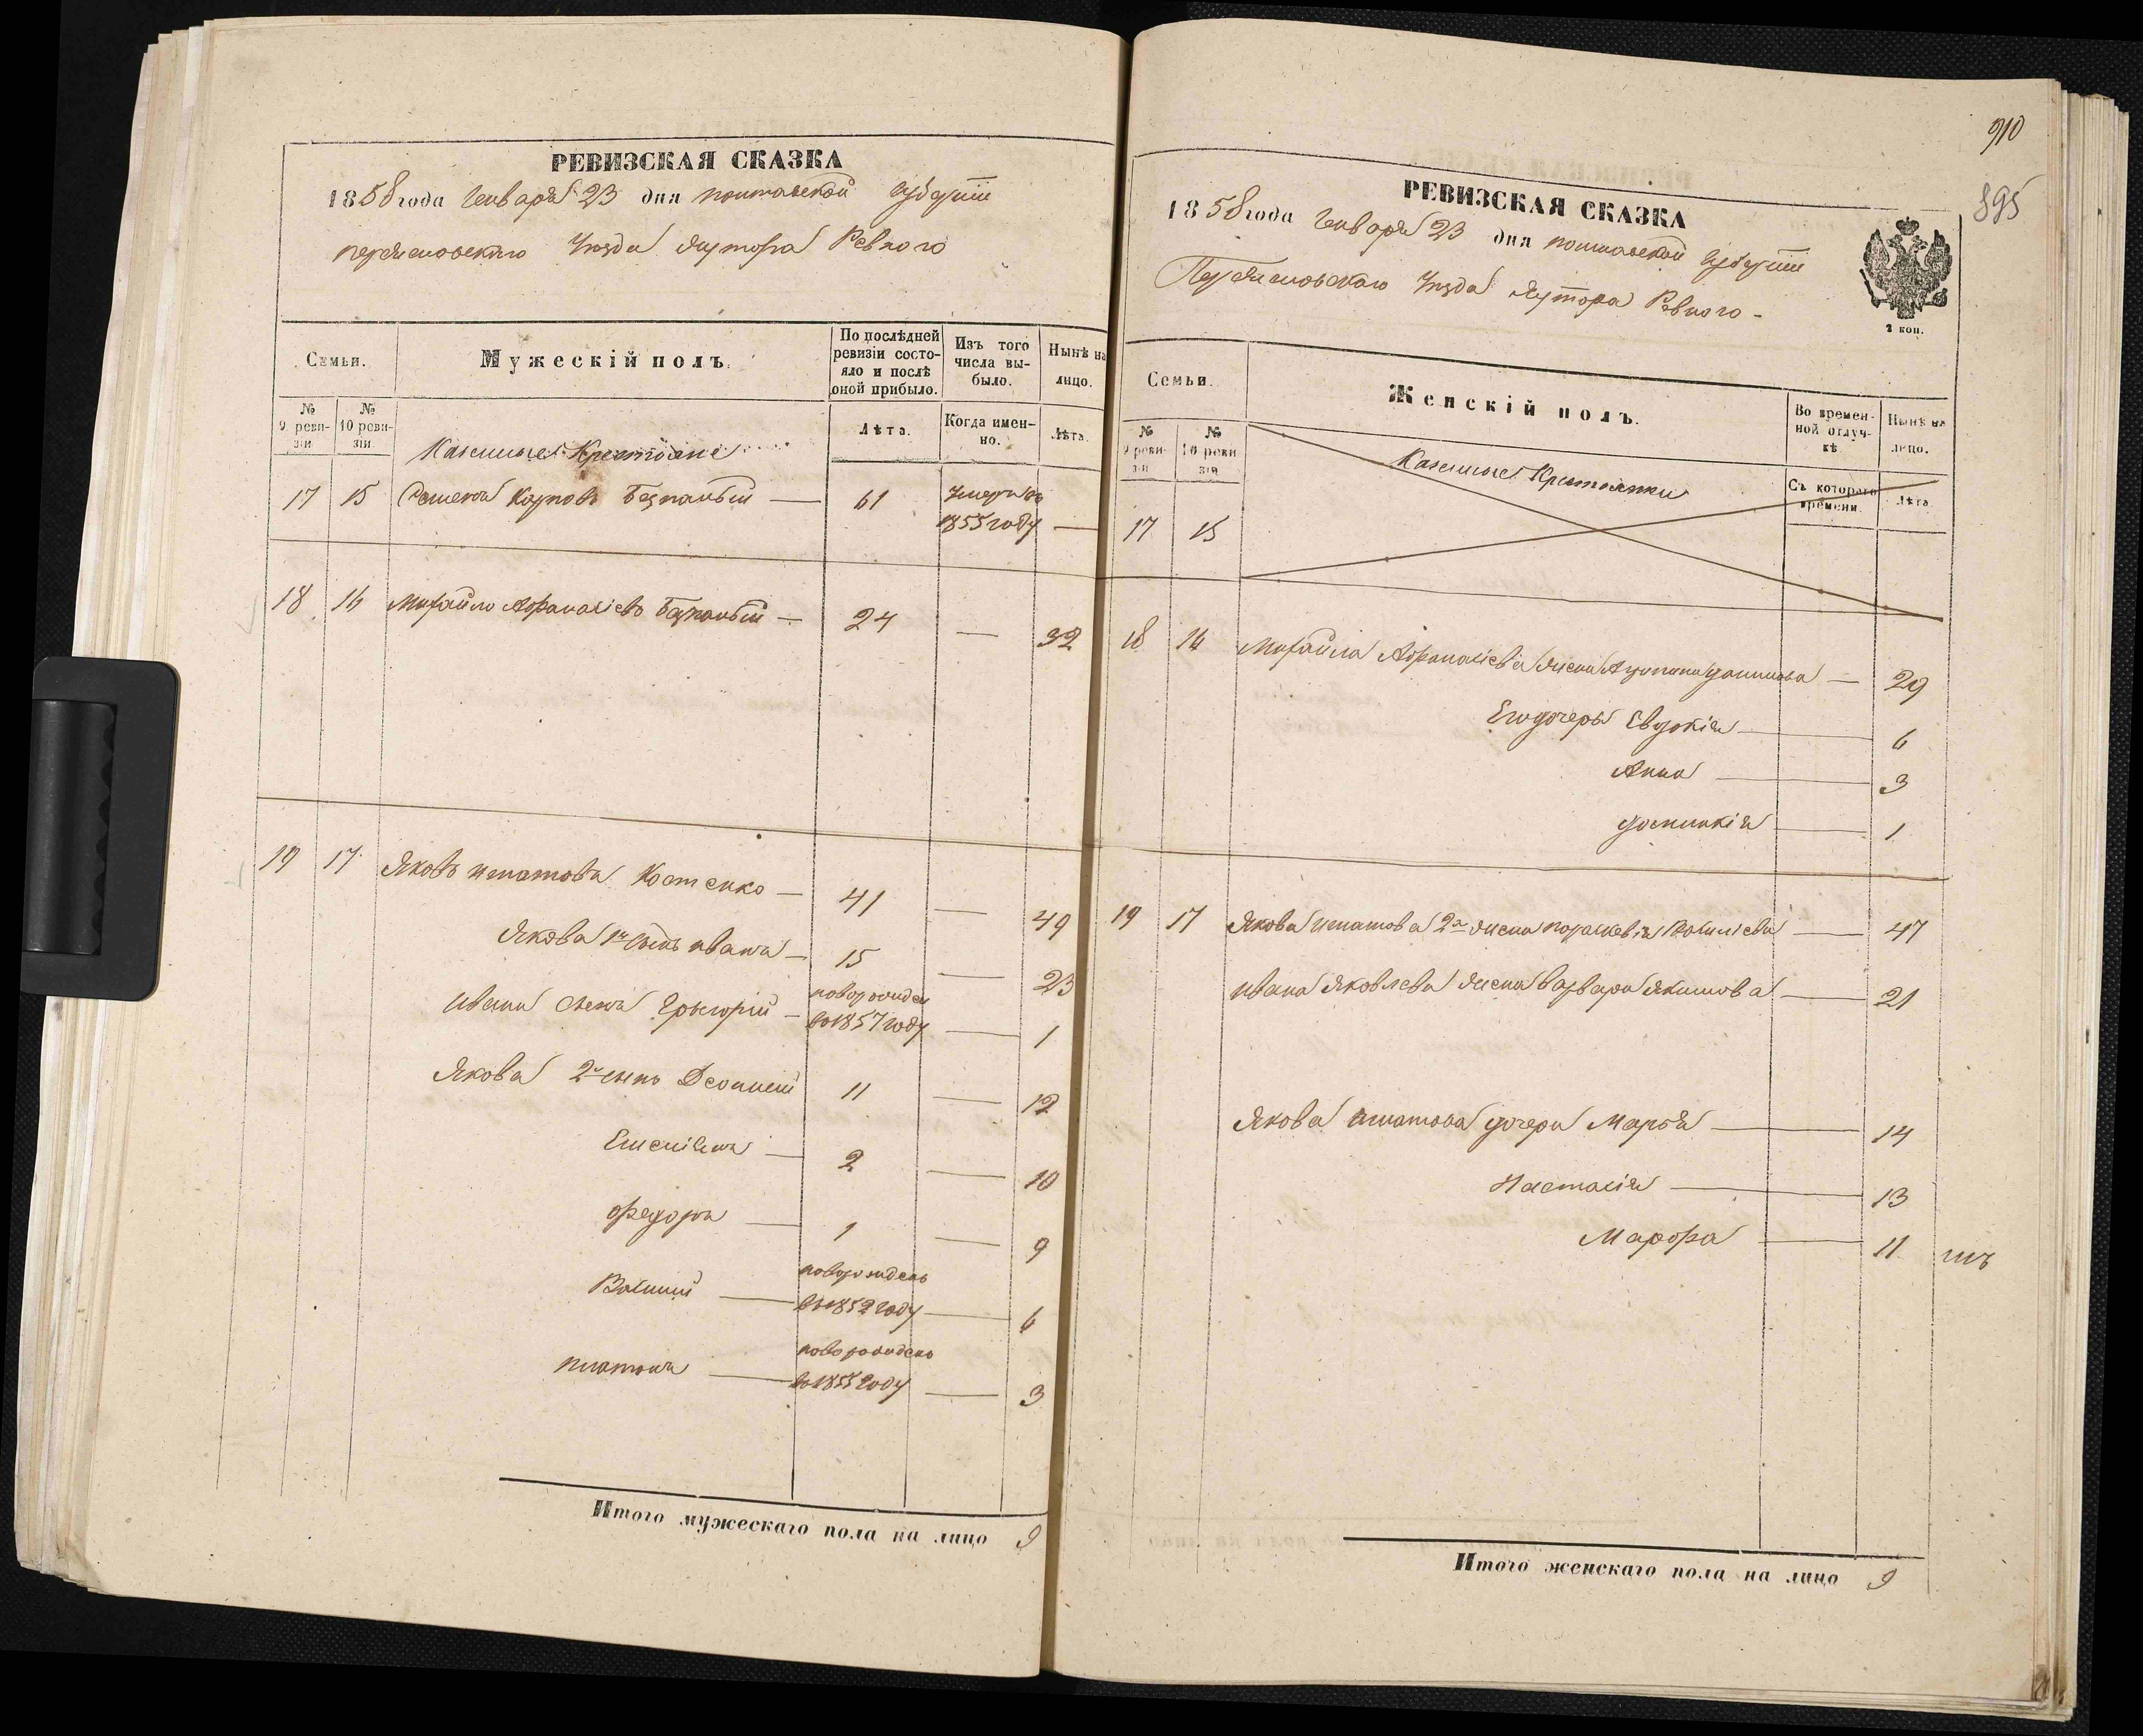 РЕВИЗСКАЯ СКАЗКА
1858 года Генваря 23 дня полтавской губернии
переяславскаго Уезда хутора Ревного
Семьи.
Мужескій полъ.
По послѣдней ревизіи состояло и послѣ оной прибыло.
Изъ того числа выбыло.
Нынѣ на лицо.
№ 9 ревизіи
№ 10 ревизіи.
Лѣта.
Когда именно.
Лѣта
Казенные Крестьяне
17 15 Карповъ Безпалый — 61 Умеръ въ
1855 году —
18 16 Михайло Афанасіевъ Безпалый — 24 — 32
19 17 Яковъ игнатовъ Костенко — 41 — 49
Якова 1й сынъ иванъ — 15 — 23
Ивана сынъ Григорій — новорожден
въ 1857 году — 1
Якова 2й сынъ 11 — 12
Емеліянъ — 2 — 10
Федоръ — 1 — 9
Василій — новорожденъ
въ 1852 году — 6
платонъ — новорожденъ
въ 1855 году — 3
Итого мужескаго пола на лицо 9
910
895
РЕВИЗСКАЯ СКАЗКА
1858 года Генваря 23 дня полтавской губернии
Переяславскаго Уезда хутора Ревного -
2 коп.
Семьи.
Женскій полъ.
Во временной отлучкѣ
Нынѣ на лицо.
№ 9 ревизіи
№ 10 ревизія
Съ котораго времени.
Лѣта
Казенные Крестьянки
17 15
18 16 Михайла Афанасіева жена — 29
Его дочеры Евдокія — 6
Анна — 3
Домникія — 1
19 17 Якова игнатова 2я жена параскевія Василіева — 47
ивана Яковлева жена Варвара Якимова — 21
Якова игнатова дочери Марья — 14
Настасія — 13
Марфа — 11
Итого женскаго пола на лицо 9